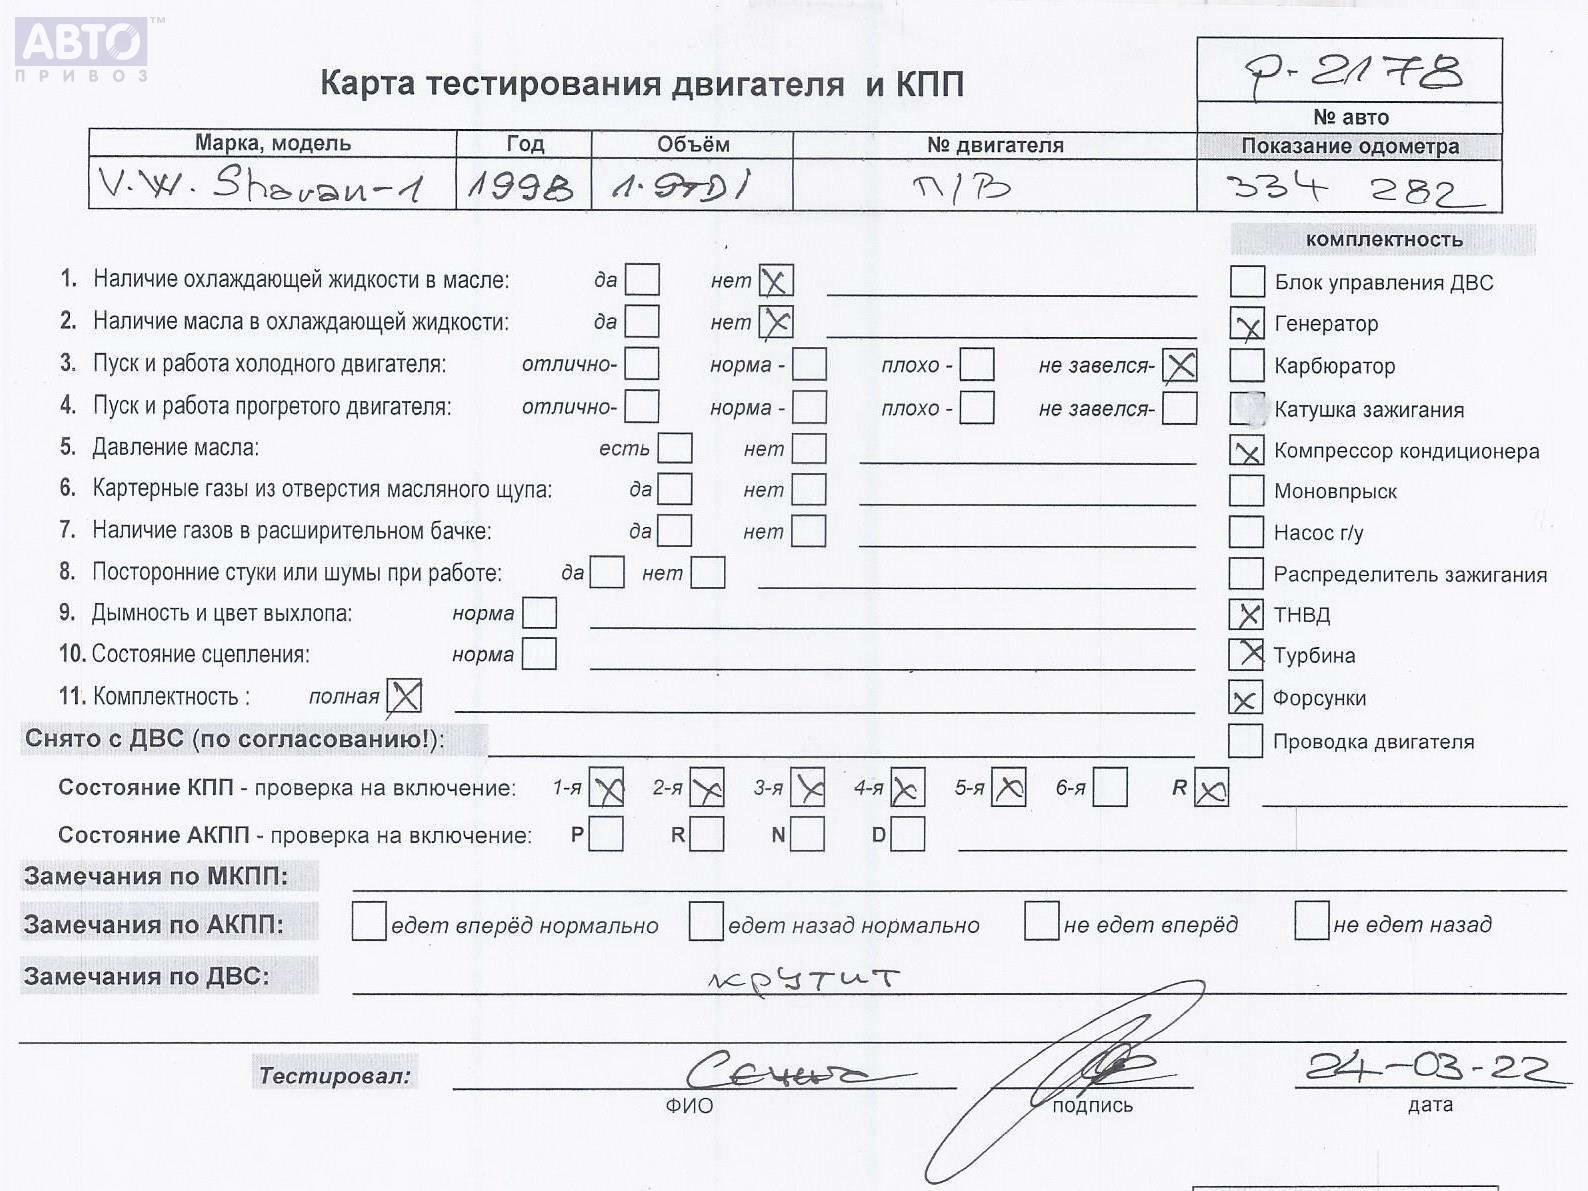 АВТО™
ПРИВОЗ
Карта тестирования двигателя и КПП
р-2178
№ авто
Марка, модель Год Объём № двигателя Показание одометра
V.W. Sharan-1 1998 1.9TDi П/В 334 282
комплектность
1. Наличие охлаждающей жидкости в масле: да нет X Блок управления ДВС
2. Наличие масла в охлаждающей жидкости: да нет X X Генератор
3. Пуск и работа холодного двигателя: отлично- норма - плохо - не завелся- X Карбюратор
4. Пуск и работа прогретого двигателя: отлично- норма - плохо - не завелся- Катушка зажигания
5. Давление масла: есть нет X Компрессор кондиционера
6. Картерные газы из отверстия масляного щупа: да нет Моновпрыск
7. Наличие газов в расширительном бачке: да нет Насос г/у
8. Посторонние стуки или шумы при работе: да нет Распределитель зажигания
9. Дымность и цвет выхлопа: норма X ТНВД
10. Состояние сцепления: норма X Турбина
11. Комплектность : полная X X Форсунки
Снято с ДВС (по согласованию!): Проводка двигателя
Состояние КПП - проверка на включение: 1-я X 2-я X 3-я X 4-я X 5-я X 6-я R X
Состояние АКПП - проверка на включение: P R N D
Замечания по МКПП:
Замечания по АКПП: едет вперёд нормально едет назад нормально не едет вперёд не едет назад
Замечания по ДВС: крутит
Тестировал: 24-03-22
ФИО подпись дата